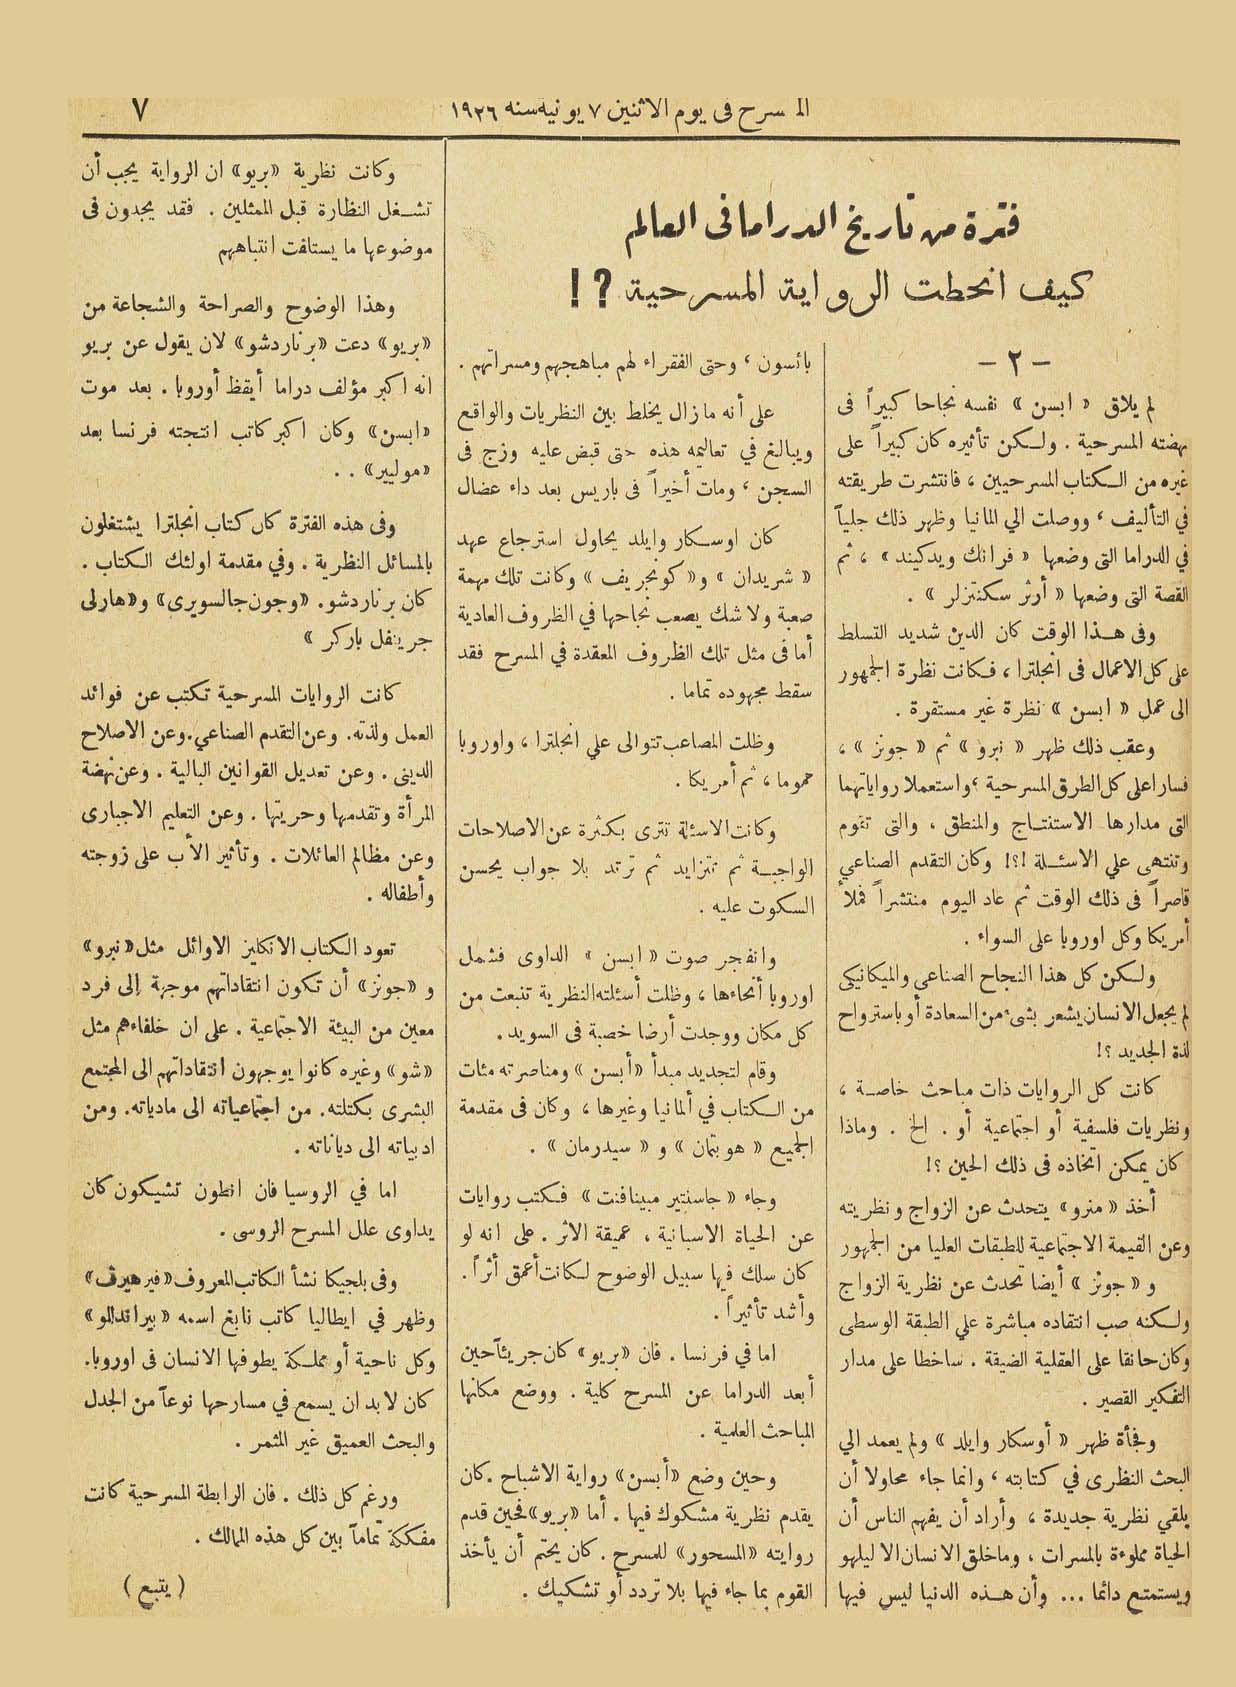 المسرح فى يوم الاثنين ٧ يونيه سنه ١٩٢٦
٧
فترة من تاريخ الدراما فى العالم
كيف انحطت الرواية المسرحية ؟ !
— ٢ —
لم يلاق « ابسن » نفسه نجاحا كبيراً فى
نهضته المسرحية . ولكن تأثيره كان كبيراً على
غيره من الكتاب المسرحيين ، فانتشرت طريقته
في التأليف ، ووصلت الي المانيا وظهر ذلك جلياً
في الدراما التى وضعها « فرانك ويدكيند » ، ثم
القصة التى وضعها « أرثر سكنتزلر » .
وفى هذا الوقت كان الدين شديد التسلط
على كل الاعمال فى انجلترا ، فكانت نظرة الجمهور
الى عمل « ابسن » نظرة غير مستقرة .
وعقب ذلك ظهر « نبرو » ثم « جونز » ،
فسارا على كل الطرق المسرحية ، واستعملا رواياتهما
التى مدارها الاستنتاج والمنطق ، والتى تقوم
وتنتهى علي الاسئلة !؟! وكان التقدم الصناعي
قاصراً فى ذلك الوقت ثم عاد اليوم منتشراً فملأ
أمريكا وكل اوروبا على السواء .
ولكن كل هذا النجاح الصناعي والميكانيكى
لم يجعل الانسان يشعر بشىء من السعادة أو باسترواح
لذة الجديد ؟!
كانت كل الروايات ذات مباحث خاصة ،
ونظريات فلسفية أو اجتماعية أو . الخ . وماذا
كان يمكن اتخاذه فى ذلك الحين ؟!
أخذ « منرو » يتحدث عن الزواج ونظريته
وعن القيمة الاجتماعية للطبقات العليا من الجمهور
و « جونز » أيضا تحدث عن نظرية الزواج
ولكنه صب انتقاده مباشرة علي الطبقة الوسطى
وكان حانقا على العقلية الضيقة . ساخطا على مدار
التفكير القصير .
وفجأة ظهر « أوسكار وايلد » ولم يعمد الي
البحث النظرى في كتابته ، وانما جاء محاولا أن
يلقي نظرية جديدة ، وأراد أن يفهم الناس أن
الحياة مملوءة بالمسرات ، وما خلق الانسان الا ليلهو
ويستمتع دائما ... وأن هذه الدنيا ليس فيها
بائسون ، وحتى الفقراء لهم مباهجهم ومسراتهم .
على أنه مازال يخلط بين النظريات والواقع
ويبالغ في تعاليمه هذه حتى قبض عليه وزج فى
السجن ، ومات أخيراً فى باريس بعد داء عضال
كان اوسكار وايلد يحاول استرجاع عهد
« شريدان » و« كونجريف » وكانت تلك مهمة
صعبة ولا شك يصعب نجاحها في الظروف العادية
أما فى مثل تلك الظروف المعقدة في المسرح فقد
سقط مجهوده تماما .
وظلت المصاعب تتوالى علي انجلترا ، واوروبا
عموما ، ثم أمريكا .
وكانت الاسئلة تترى بكثرة عن الاصلاحات
الواجبة ثم تتزايد ثم ترتد بلا جواب يحسن
السكوت عليه .
وانفجر صوت « ابسن » الداوى فشمل
اوروبا أنحاءها ، وظلت أسئلته النظرية تنبعث من
كل مكان ووجدت أرضا خصبة فى السويد .
وقام لتجديد مبدأ « أبسن » ومناصرته مئات
من الكتاب في ألمانيا وغيرها ، وكان فى مقدمة
الجميع « هوبتمان » و « سيدرمان » .
وجاء « جاسنتير مبينافنت » فكتب روايات
عن الحياة الاسبانية ، عميقة الاثر . على انه لو
كان سلك فيها سبيل الوضوح لكانت أعمق أثراً .
وأشد تأثيراً .
اما في فرنسا . فان « بريو » كان جريئاً حين
أبعد الدراما عن المسرح كلية . ووضع مكانها
المباحث العلمية .
وحين وضع « أبسن » رواية الاشباح . كان
يقدم نظرية مشكوك فيها . أما « بريو » فحين قدم
روايته « المسحور » للمسرح . كان يحتم أن يأخذ
القوم بما جاء فيها بلا تردد أو تشكيك .
وكانت نظرية « بريو » ان الرواية يجب أن
تشغل النظارة قبل الممثلين . فقد يجدون فى
موضوعها ما يستلفت انتباههم
وهذا الوضوح والصراحة والشجاعة من
« بريو » دعت « برناردشو » لان يقول عن بريو
انه اكبر مؤلف دراما أيقظ أوروبا . بعد موت
« ابسن » وكان اكبر كاتب انتجته فرنسا بعد
« موليير » . .
وفى هذه الفترة كان كتاب انجلترا يشتغلون
بالمسائل النظرية . وفي مقدمة اولئك الكتاب .
كان برناردشو . « وجون جالسويرى » و« هارلى
جرينفل باركر »
كانت الروايات المسرحية تكتب عن فوائد
العمل ولذته . وعن التقدم الصناعي . وعن الاصلاح
الدينى . وعن تعديل القوانين البالية . وعن نهضة
المرأة وتقدمها وحريتها . وعن التعليم الاجبارى
وعن مظالم العائلات . وتأثير الأب على زوجته
وأطفاله .
تعود الكتاب الانكليز الاوائل مثل « نبرو »
و « جونز » أن تكون انتقاداتهم موجهة إلى فرد
معين من البيئة الاجتماعية . على ان خلفاءهم مثل
« شو » وغيره كانوا يوجهون انتقاداتهم الى المجتمع
البشرى بكتلته . من اجتماعياته الى مادياته . ومن
ادبياته الى دياناته .
اما في الروسيا فان انطون تشيكون كان
يداوى علل المسرح الروسى .
وفى بلجيكا نشأ الكاتب المعروف « فيرهيرف »
وظهر في ايطاليا كاتب نابغ اسمه « بيراندللو »
وكل ناحية أو مملكة يطوفها الانسان فى اوروبا .
كان لابد ان يسمع في مسارحها نوعاً من الجدل
والبحث العميق غير المثمر .
ورغم كل ذلك . فان الرابطة المسرحية كانت
مفككة تماماً بين كل هذه الممالك .
( يتبع )